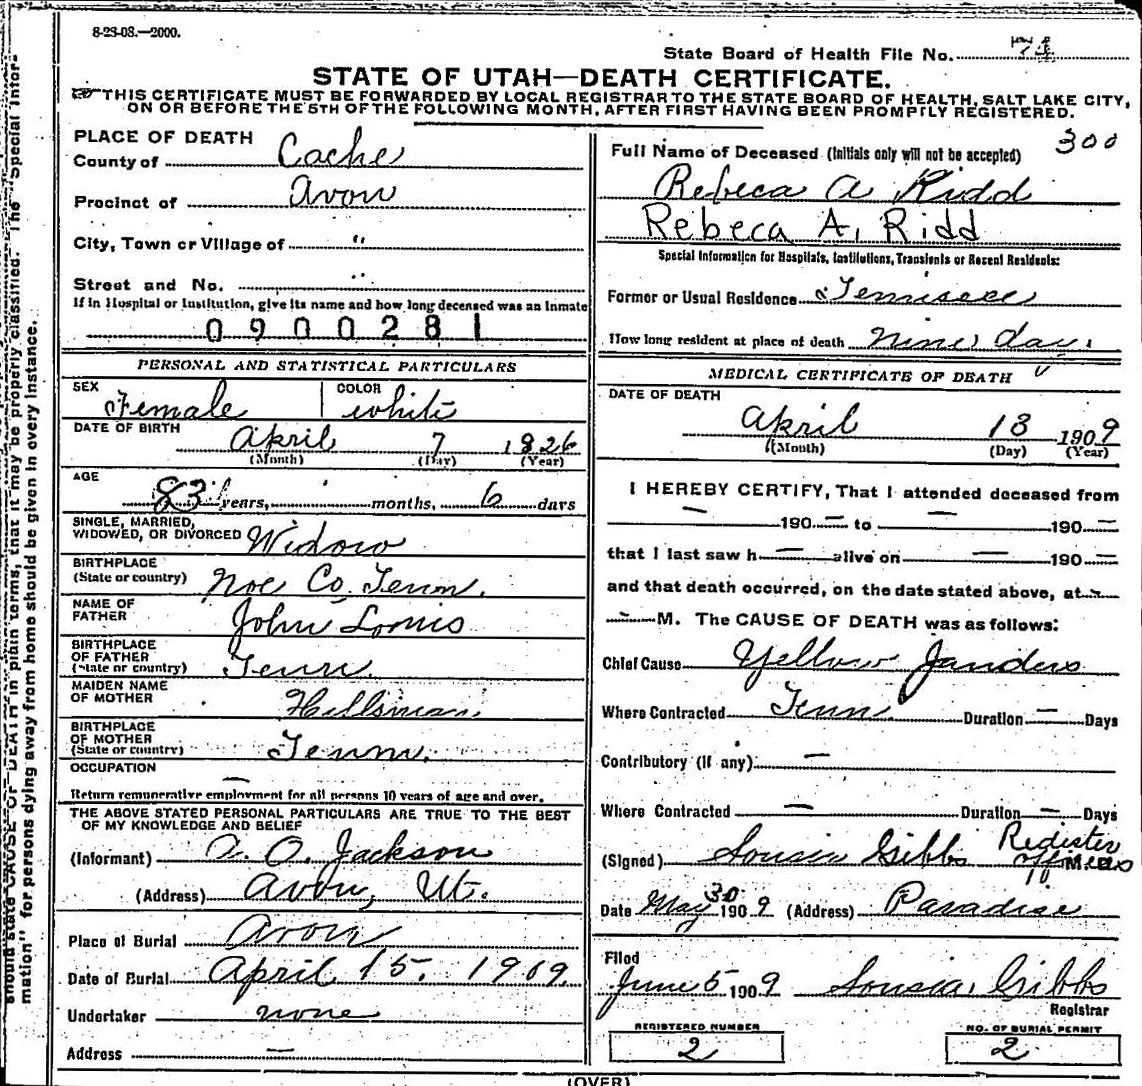 8-23-08.—2000.
State Board of Health File No. 74
STATE OF UTAH—DEATH CERTIFICATE.
THIS CERTIFICATE MUST BE FORWARDED BY LOCAL REGISTRAR TO THE STATE BOARD OF HEALTH, SALT LAKE CITY,
ON OR BEFORE THE 5TH OF THE FOLLOWING MONTH, AFTER FIRST HAVING BEEN PROMPTLY REGISTERED.
PLACE OF DEATH
County of Cache
Precinct of Avon
City, Town or Village of "
Street and No. ..
If in Hospital or Institution, give its name and how long deceased was an inmate
0900281
PERSONAL AND STATISTICAL PARTICULARS
SEX Female COLOR white
DATE OF BIRTH April 7 1826
(Month) (Day) (Year)
AGE
83 years, months, 6 days
SINGLE, MARRIED,
WIDOWED, OR DIVORCED Widow
BIRTHPLACE
(State or country) Noe Co, Tenn.
NAME OF
FATHER John Lomis
BIRTHPLACE
OF FATHER
(State or country) Tenn.
MAIDEN NAME
OF MOTHER Hillsman
BIRTHPLACE
OF MOTHER
(State or country) Tenn.
OCCUPATION —
Return remunerative employment for all persons 10 years of age and over.
THE ABOVE STATED PERSONAL PARTICULARS ARE TRUE TO THE BEST
OF MY KNOWLEDGE AND BELIEF
(Informant) A. O. Jackson
(Address) Avon, Ut.
Place of Burial Avon
Date of Burial April 15. 1909.
Undertaker none
Address —
300
Full Name of Deceased (Initials only will not be accepted)
Rebeca A Ridd
Rebeca A. Ridd
Special Information for Hospitals, Institutions, Transients or Recent Residents:
Former or Usual Residence Tennisee
How long resident at place of death nine days
MEDICAL CERTIFICATE OF DEATH
DATE OF DEATH
April 13 1909
(Month) (Day) (Year)
I HEREBY CERTIFY, That I attended deceased from
— 190— to — 190—
that I last saw h— alive on — 190—
and that death occurred, on the date stated above, at —
— M. The CAUSE OF DEATH was as follows:
Chief Cause Yellow Janders
Where Contracted Tenn. Duration — Days
Contributory (if any): —
Where Contracted — Duration — Days
(Signed) Lousia Gibbs Register
Date May 30 1909 (Address) Paradise
Filed
June 5 1909 Lousia Gibbs
Registrar
REGISTERED NUMBER
2
NO. OF BURIAL PERMIT
2
(OVER)
should state CAUSE OF DEATH in plain terms, that it may be properly classified. The "Special Infor-
mation" for persons dying away from home should be given in every instance.